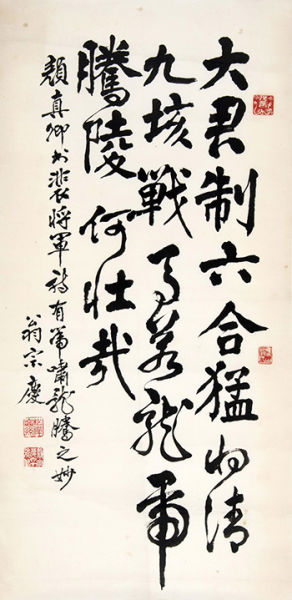 大君制六合猛将清
九垓戰馬若龍虎
騰陵何壯哉
顏真卿書裴將軍詩有虎嘯龍騰之妙
翁宗慶